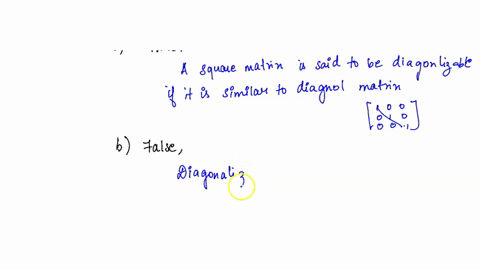 A square matrix is said to be diagonlizable
if it is similar to diagnol matrix
[1 0 0
0 1 0
0 0 1]
b) False,
Diagonaliz